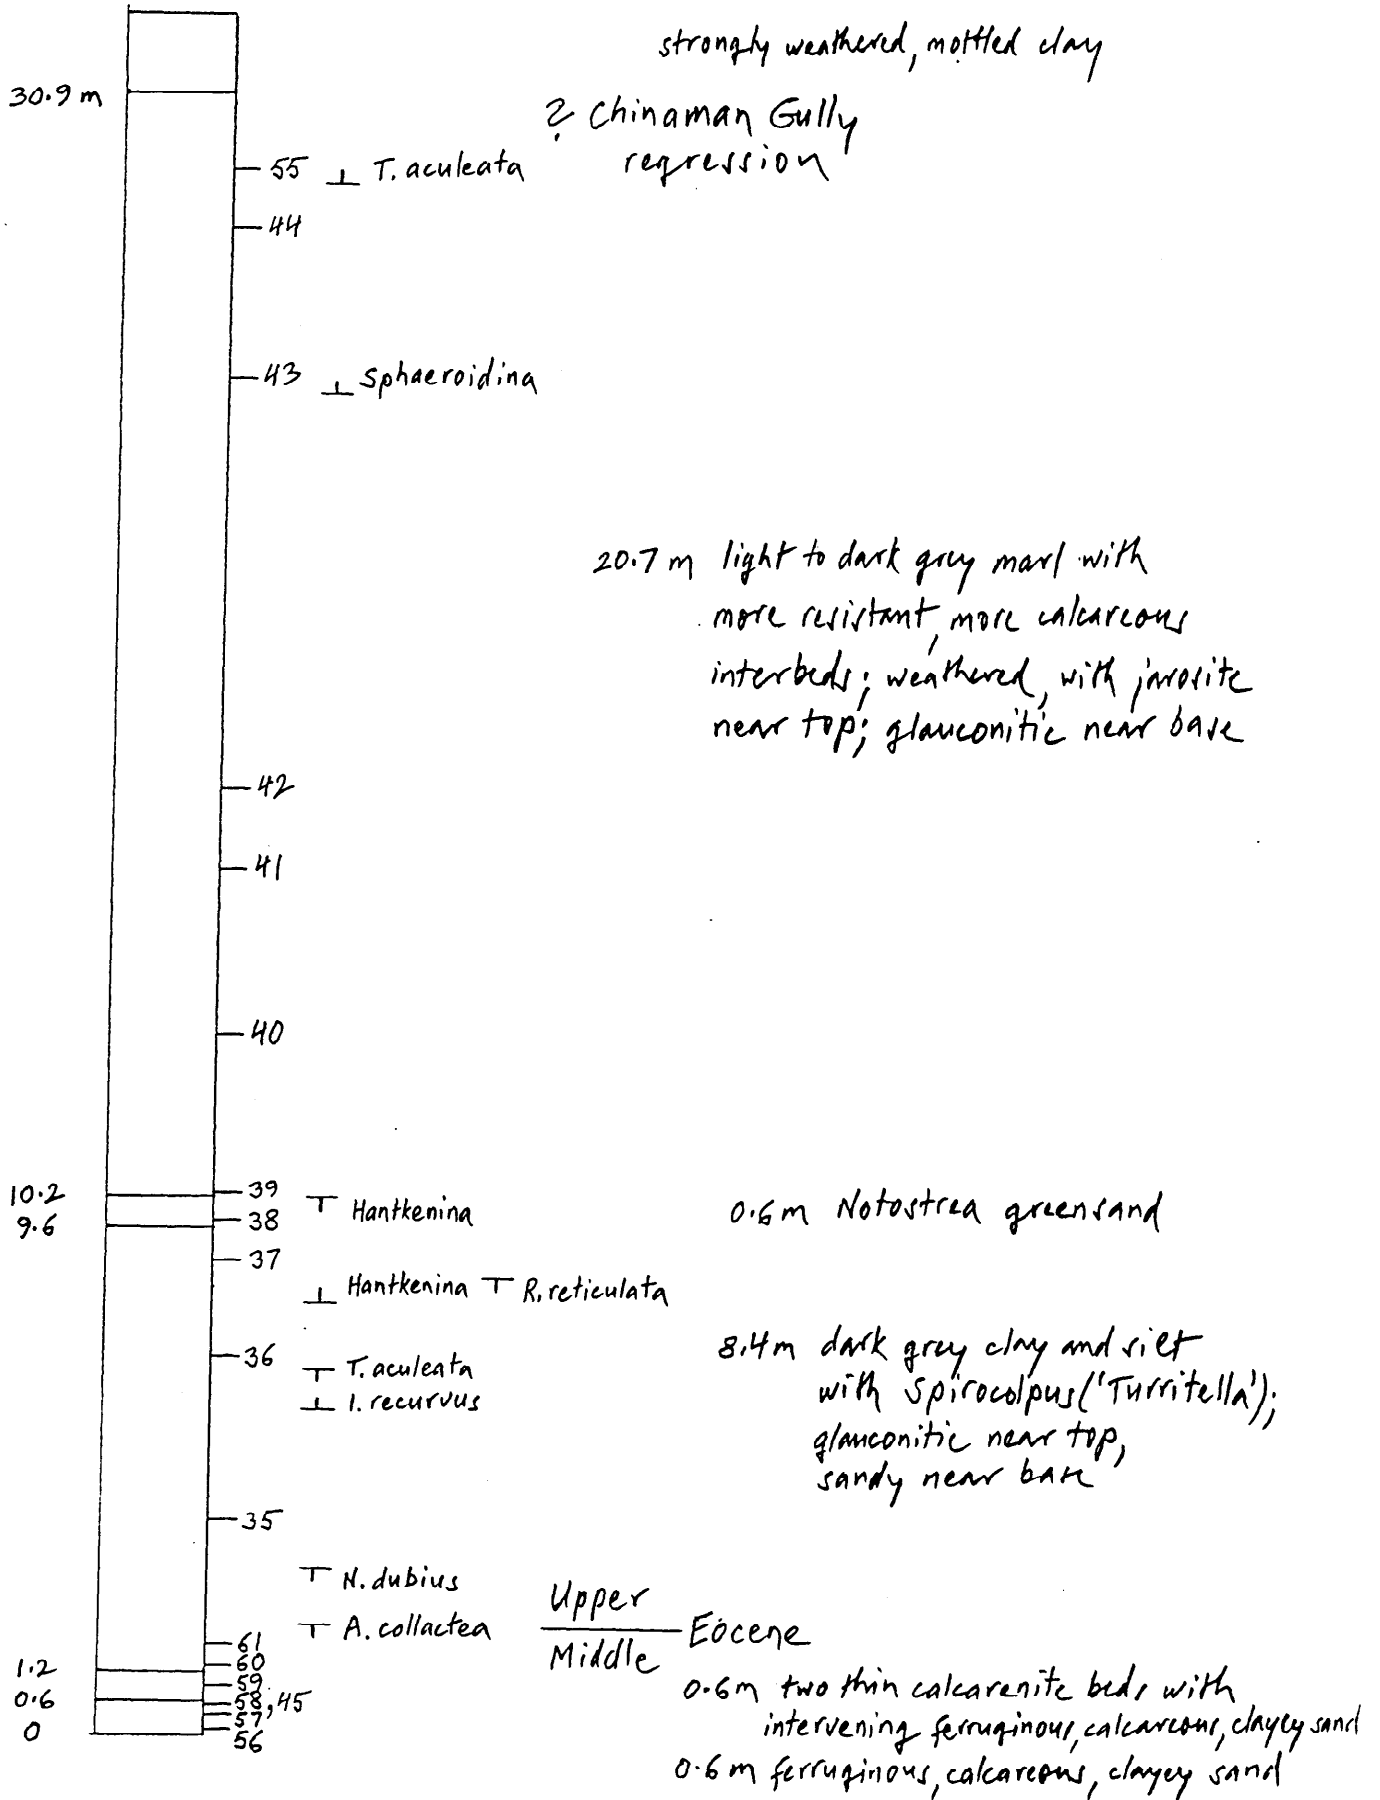 strongly weathered, mottled clay
30.9 m
? Chinaman Gully
regression
55 ⊥ T. aculeata
44
43 ⊥ Sphaeroidina
20.7 m light to dark grey marl with
more resistant, more calcareous
interbeds; weathered, with jarosite
near top; glauconitic near base
42
41
40
10.2
39
⊤ Hantkenina
0.6 m Notostrea greensand
9.6
38
37
⊥ Hantkenina ⊤ R. reticulata
36
8.4 m dark grey clay and silt
with Spirocolpus ('Turritella');
glauconitic near top,
sandy near base
⊤ T. aculeata
⊥ I. recurvus
35
⊤ N. dubius
⊤ A. collactea
Upper
Middle
Eocene
61
60
1.2
59
0.6 m two thin calcarenite beds with
intervening ferruginous, calcareous, clayey sand
0.6
58, 45
57
0
56
0.6 m ferruginous, calcareous, clayey sand